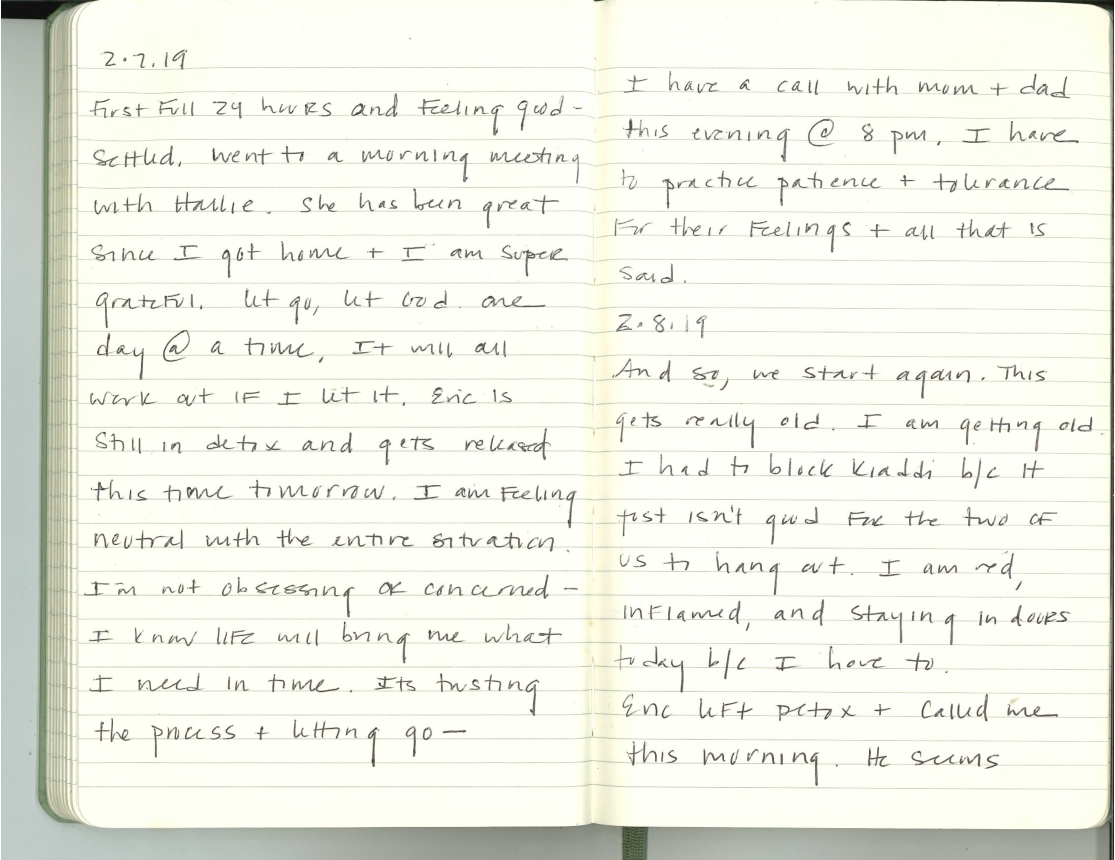 2.7.19
First Full 24 hours and Feeling good -
settled. Went to a morning meeting
with Hallie. She has been great
since I got home + I am super
grateful. Let go, let God. One
day @ a time. It will all
work out IF I let it. Eric is
still in detox and gets released
this time tomorrow. I am Feeling
neutral with the entire situation.
I'm not obsessing or concerned -
I know life will bring me what
I need in time. Its trusting
the process + letting go —
I have a call with mom + dad
this evening @ 8 pm. I have
to practice patience + tolerance
For their Feelings + all that is
said.
2.8.19
And so, we start again. This
gets really old. I am getting old
I had to block Kiaddi b/c it
just isn't good For the two OF
us to hang out. I am red,
inflamed, and staying indoors
today b/c I have to.
Eric left Detox + called me
this morning. He seems